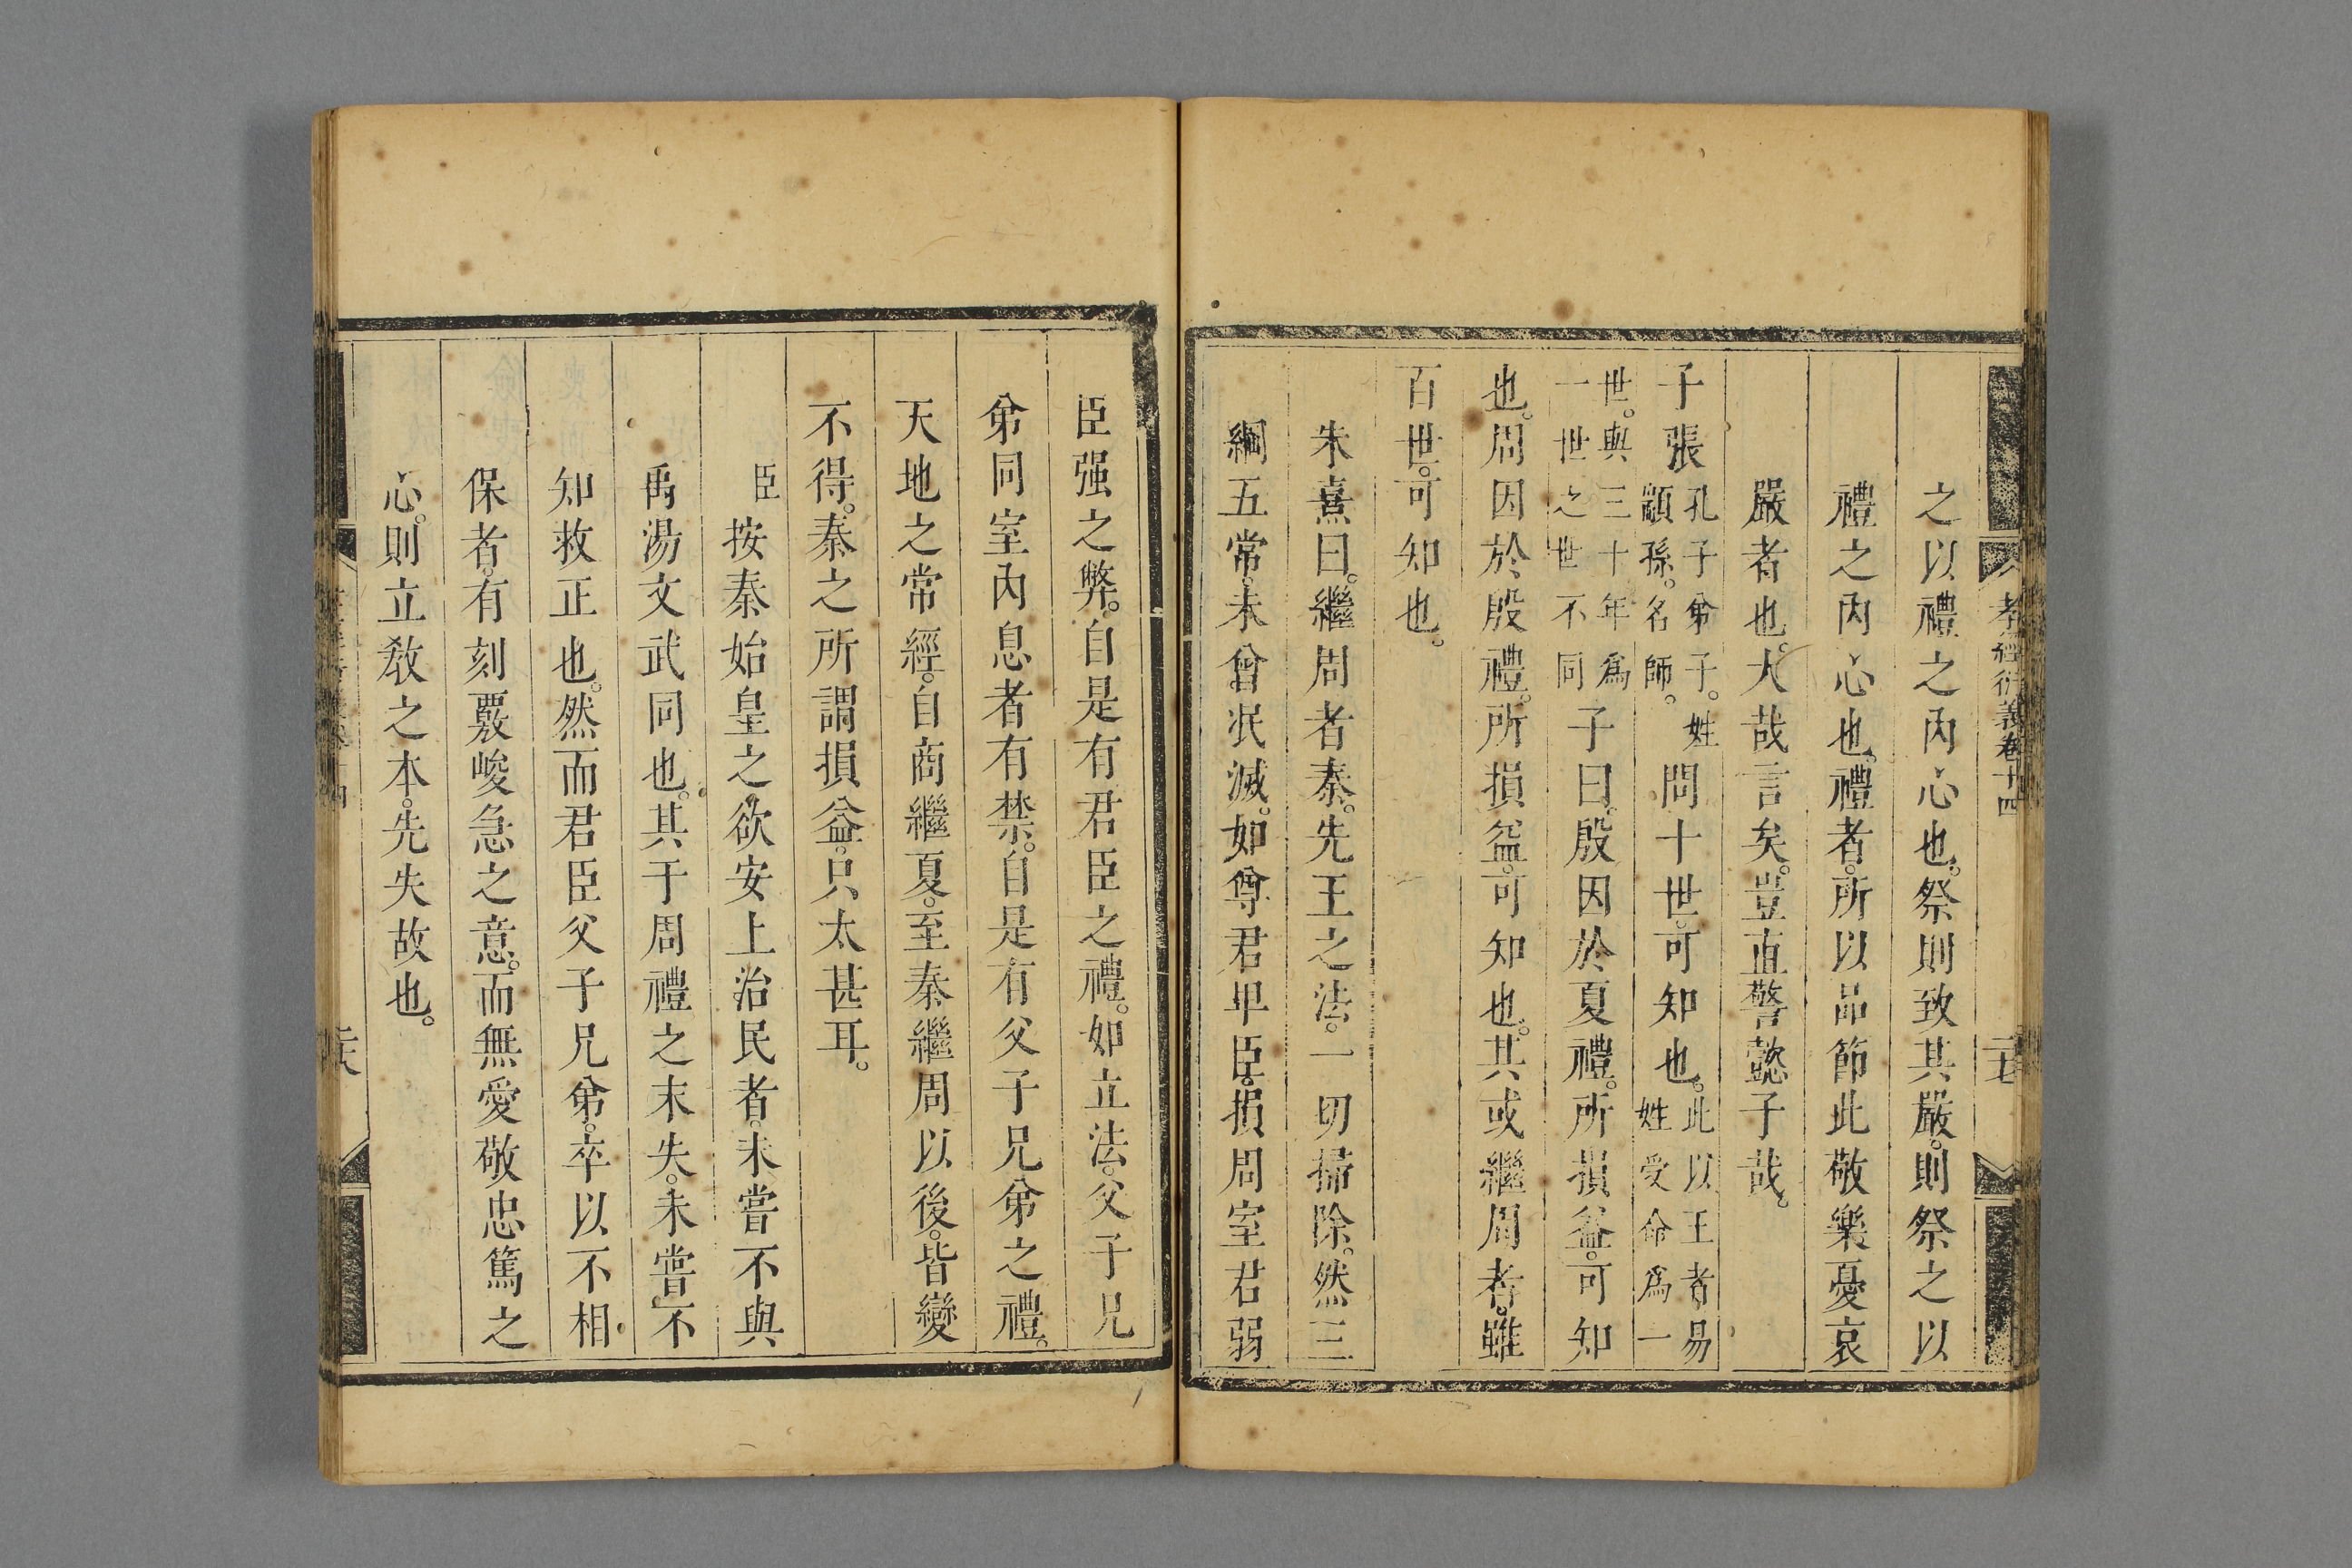 孝經衍義卷十四
之以禮之内心也。祭則致其嚴。則祭之以
禮之内心也。禮者。所以品節此敬樂憂哀
嚴者也。大哉言矣。豈直警懿子哉。
子張孔子弟子。姓顓孫。名師。問十世。可知也。此以王者易姓受命爲一
世。與三十年爲一世之世不同子曰。殷因於夏禮。所損益。可知
也。周因於殷禮。所損益。可知也。其或繼周者。雖
百世。可知也。
朱熹曰。繼周者秦。先王之法。一切掃除。然三
綱五常。未曾泯滅。如尊君卑臣。損周室君弱
臣强之弊。自是有君臣之禮。如立法。父子兄
弟同室內息者有禁。自是有父子兄弟之禮。
天地之常經。自商繼夏。至秦繼周以後。皆變
不得。秦之所謂損益。只太甚耳。
臣按秦始皇之欲安上治民者。未嘗不與
禹湯文武同也。其于周禮之末失。未嘗不
知救正也。然而君臣父子兄弟。卒以不相
保者。有刻覈峻急之意。而無愛敬忠篤之
心。則立敎之本。先失故也。